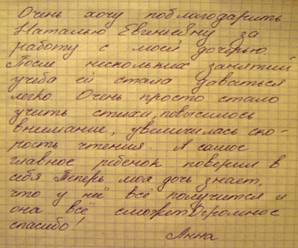 Очень хочу поблагодарить
Наталью Евгеньевну за
работу с моей дочерью
После нескольких занятий
учеба ей стала даваться
легко Очень просто стало
учить стихи, повысилось
внимание, увеличилась ско-
рость чтения. А самое
главное ребенок поверил в
себя Теперь моя дочь знает,
что у неё всё получится и
она всё сможет. Огромное
спасибо!
Анна